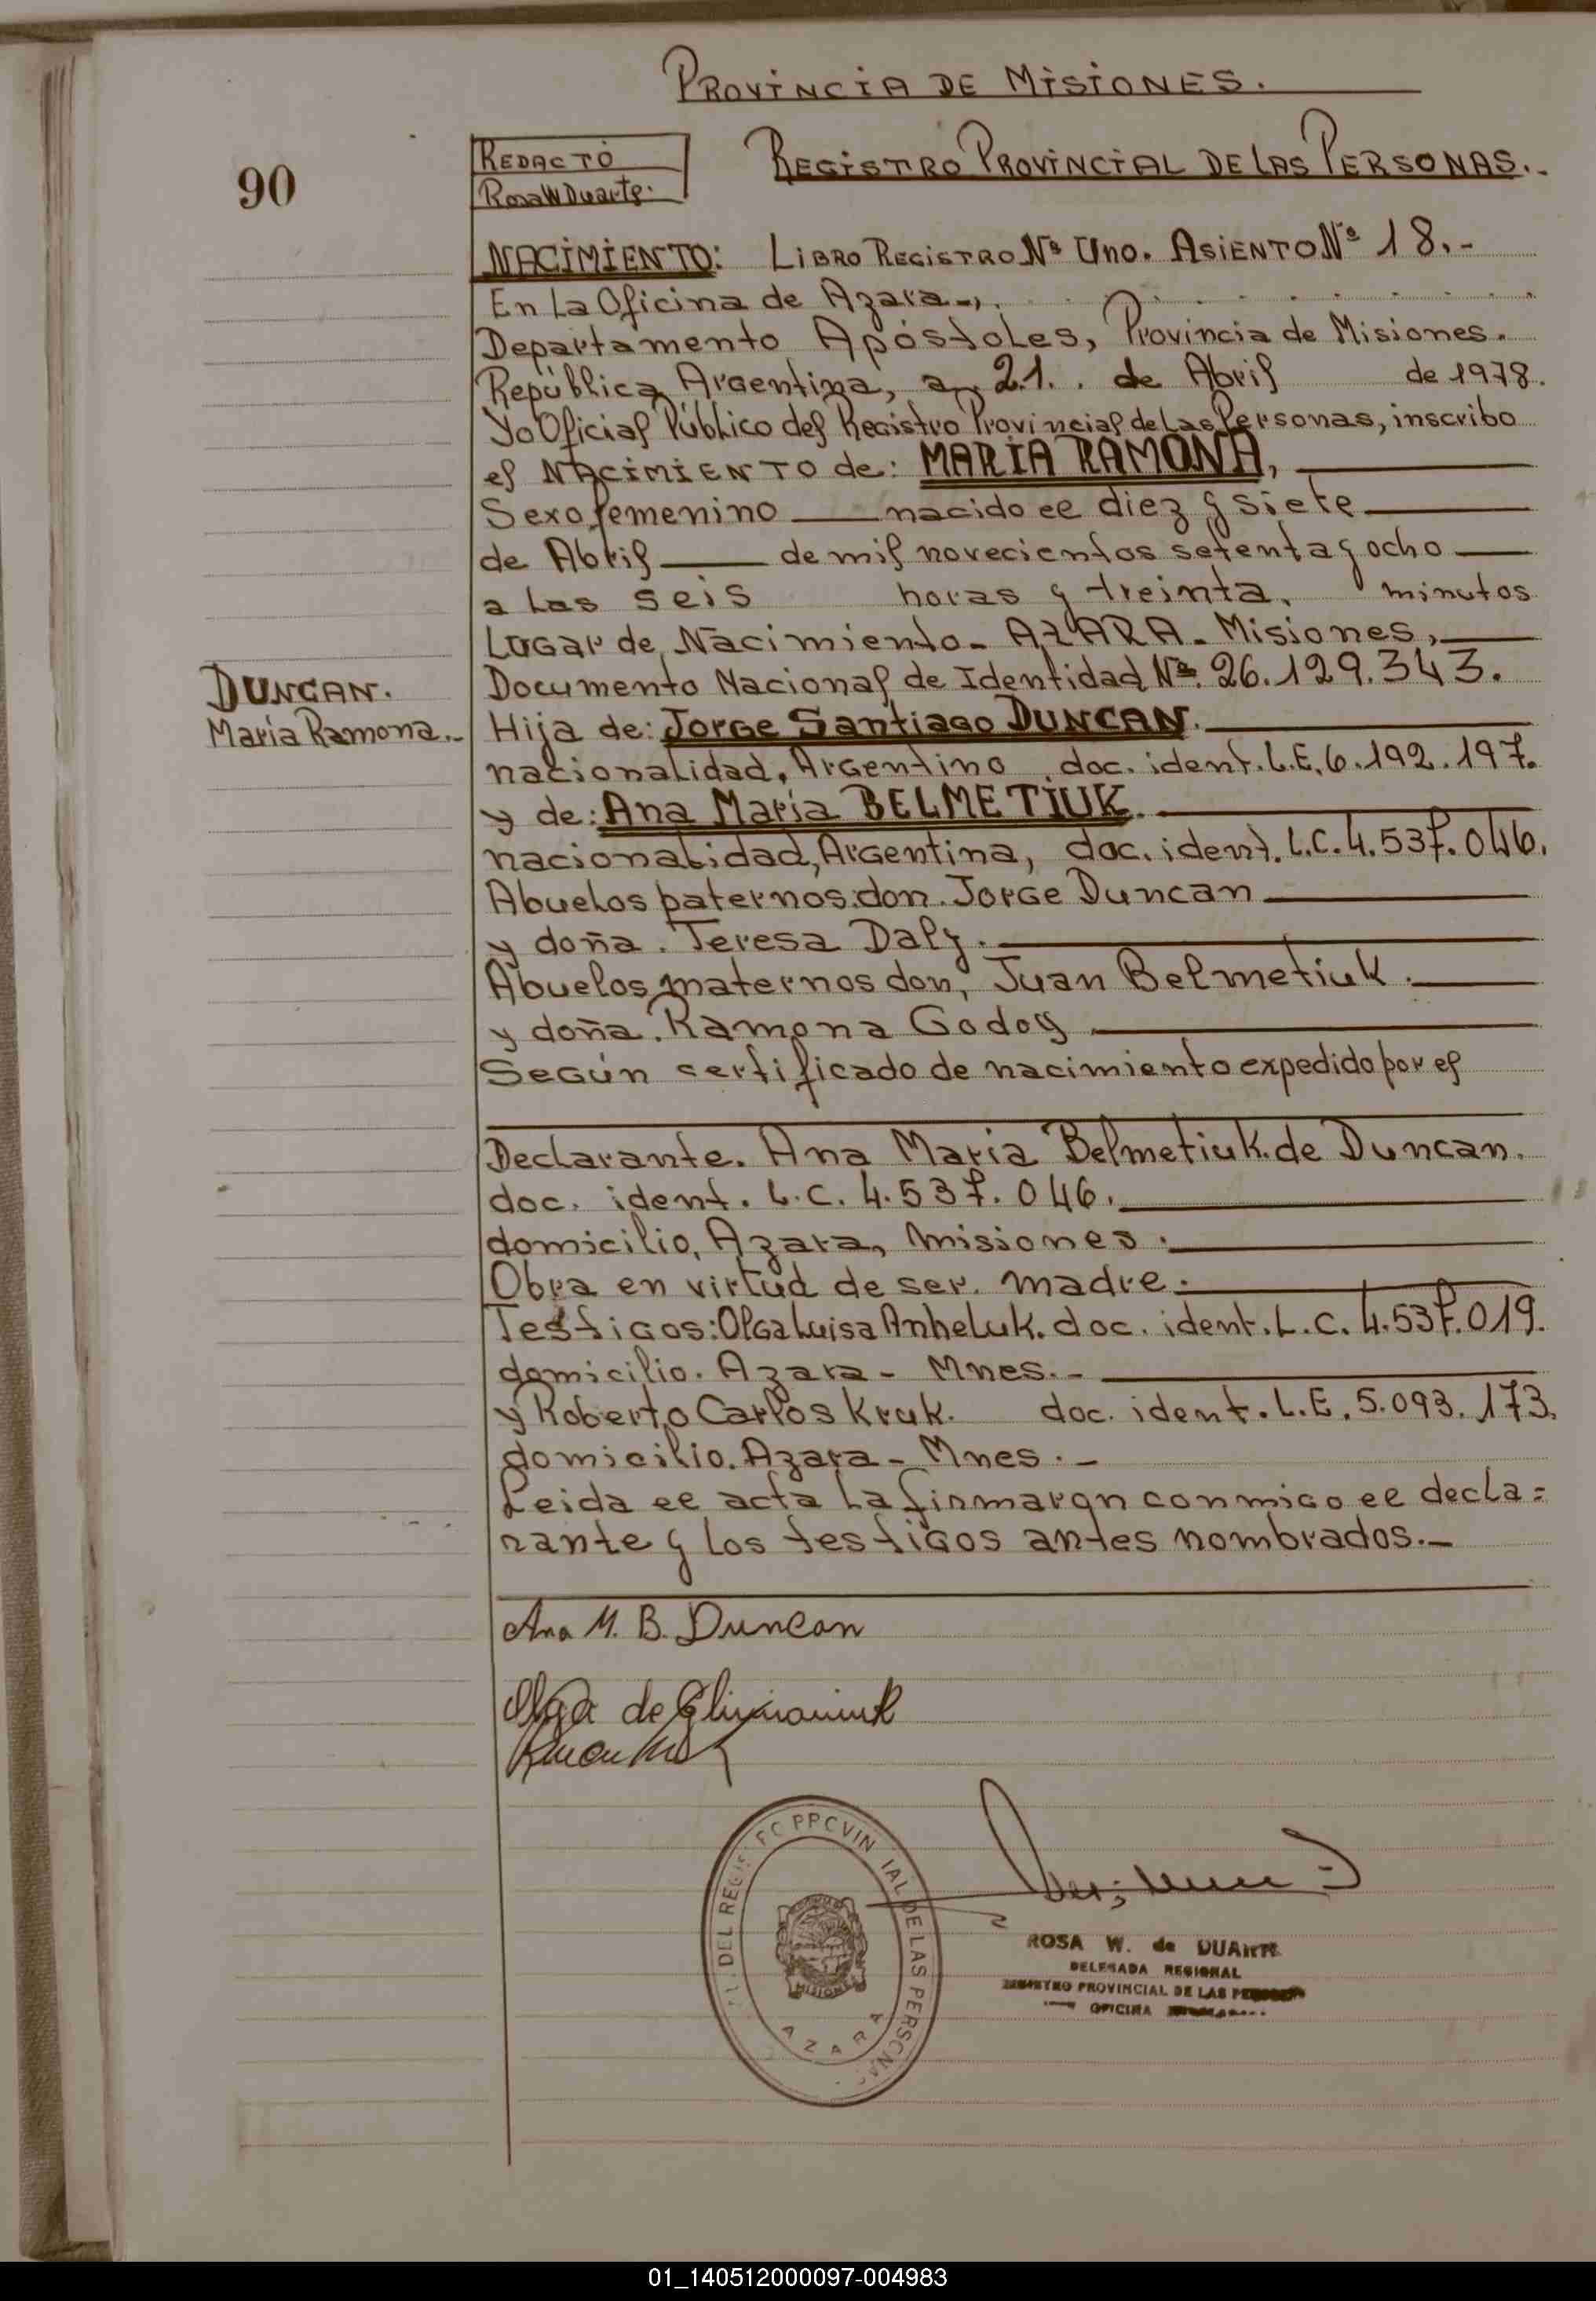 PROVINCIA DE MISIONES.
90
REDACTÓ
Rosa W Duarte.
REGISTRO PROVINCIAL DE LAS PERSONAS.-
NACIMIENTO: LIBRO REGISTRO Nº Uno. ASIENTO Nº 18.-
En La Oficina de Azara-,
Departamento Apóstoles, Provincia de Misiones.
República Argentina, a 21. de Abril de 1978.
Yo Oficial Público del Registro Provincial de Las Personas, inscribo
el NACIMIENTO de: MARÍA RAMONA,
Sexo femenino nacido el diez y siete
de Abril de mil novecientos setenta y ocho
a las seis horas y treinta, minutos
Lugar de Nacimiento- AZARA- Misiones,
DUNCAN.
María Ramona.-
Documento Nacional de Identidad Nº 26.129.343.
Hija de: Jorge Santiago DUNCAN.
nacionalidad, Argentino doc. ident. L.E. 6.192.197.
y de: Ana María BELMETIUK.
nacionalidad, Argentina, doc. ident. L.C. 4.537.046.
Abuelos paternos: don. Jorge Duncan
y doña. Teresa Daly.
Abuelos maternos don, Juan Belmetiuk.
y doña. Ramona Godoy
Según certificado de nacimiento expedido por el
Declarante. Ana María Belmetiuk. de Duncan.
doc. ident. L.C. 4.537.046.
domicilio, Azara, Misiones.
Obra en virtud de ser. madre.
Testigos: Olga Luisa Anheluk. doc. ident. L.C. 4.537.019.
domicilio. Azara- Mnes.-
y Roberto Carlos Kruk. doc. ident. L.E. 5.093.173.
domicilio. Azara- Mnes.-
Leida el acta la firmaran conmigo el decla=
rante y los testigos antes nombrados.-
Ana M. B. Duncan
Olga de
DEL REGIS PPCVIN IAL DE LAS PERSCNAS
MISIONES
AZARA
ROSA W. de DUARTE
DELEGADA REGIONAL
REGISTRO PROVINCIAL DE LAS
OFICINA
01_140512000097-004983